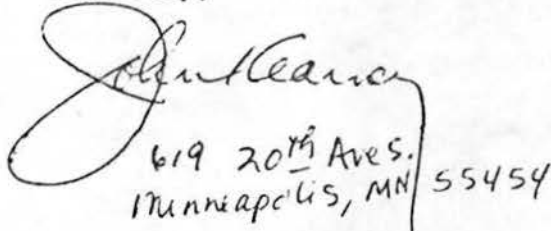 John Kearney
619 20th Ave S.
Minneapolis, MN 55454